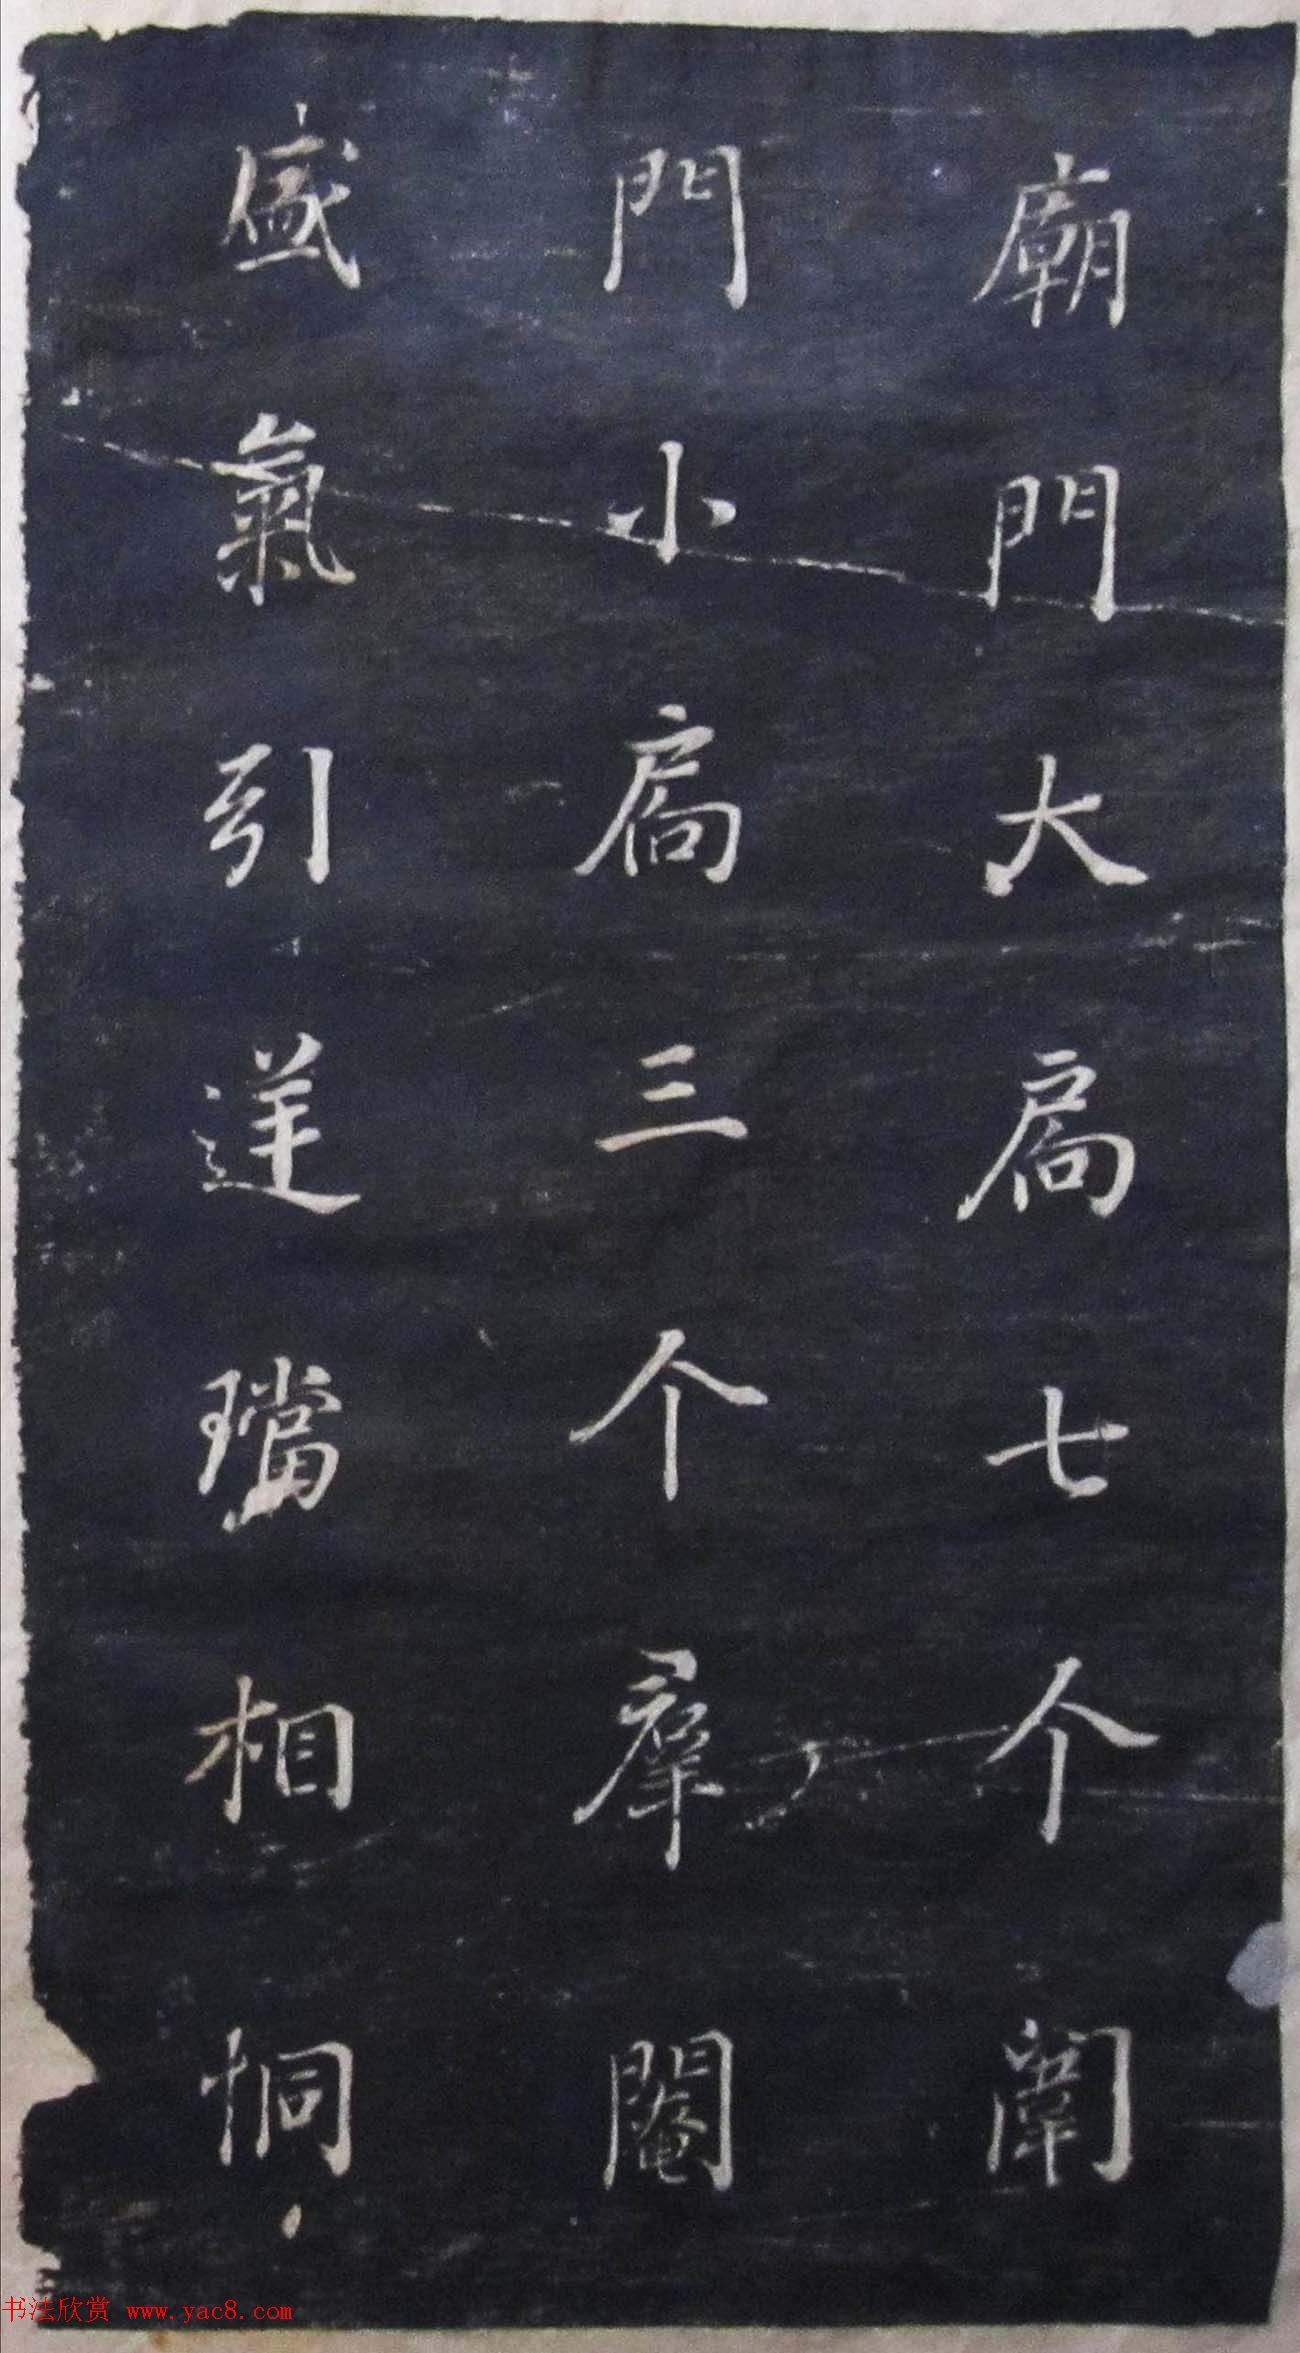 廟門大扃七个闈
門小扃三个羣闈
盛氣引逆璫相恫
书法欣赏 www.yac8.com